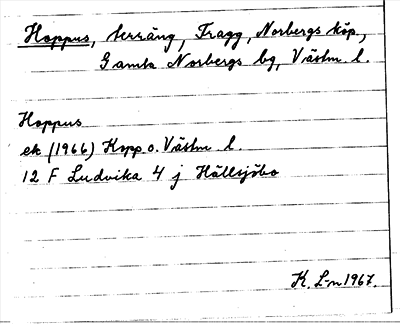 Hoppus, terräng, Fragg, Norbergs köp.,
Gamla Norbergs bg, Västm l.
Hoppus
ek (1966) Kopp o. Västm l.
12 F Ludvika 4 j Hällsjöbo
K. L-n 1967.